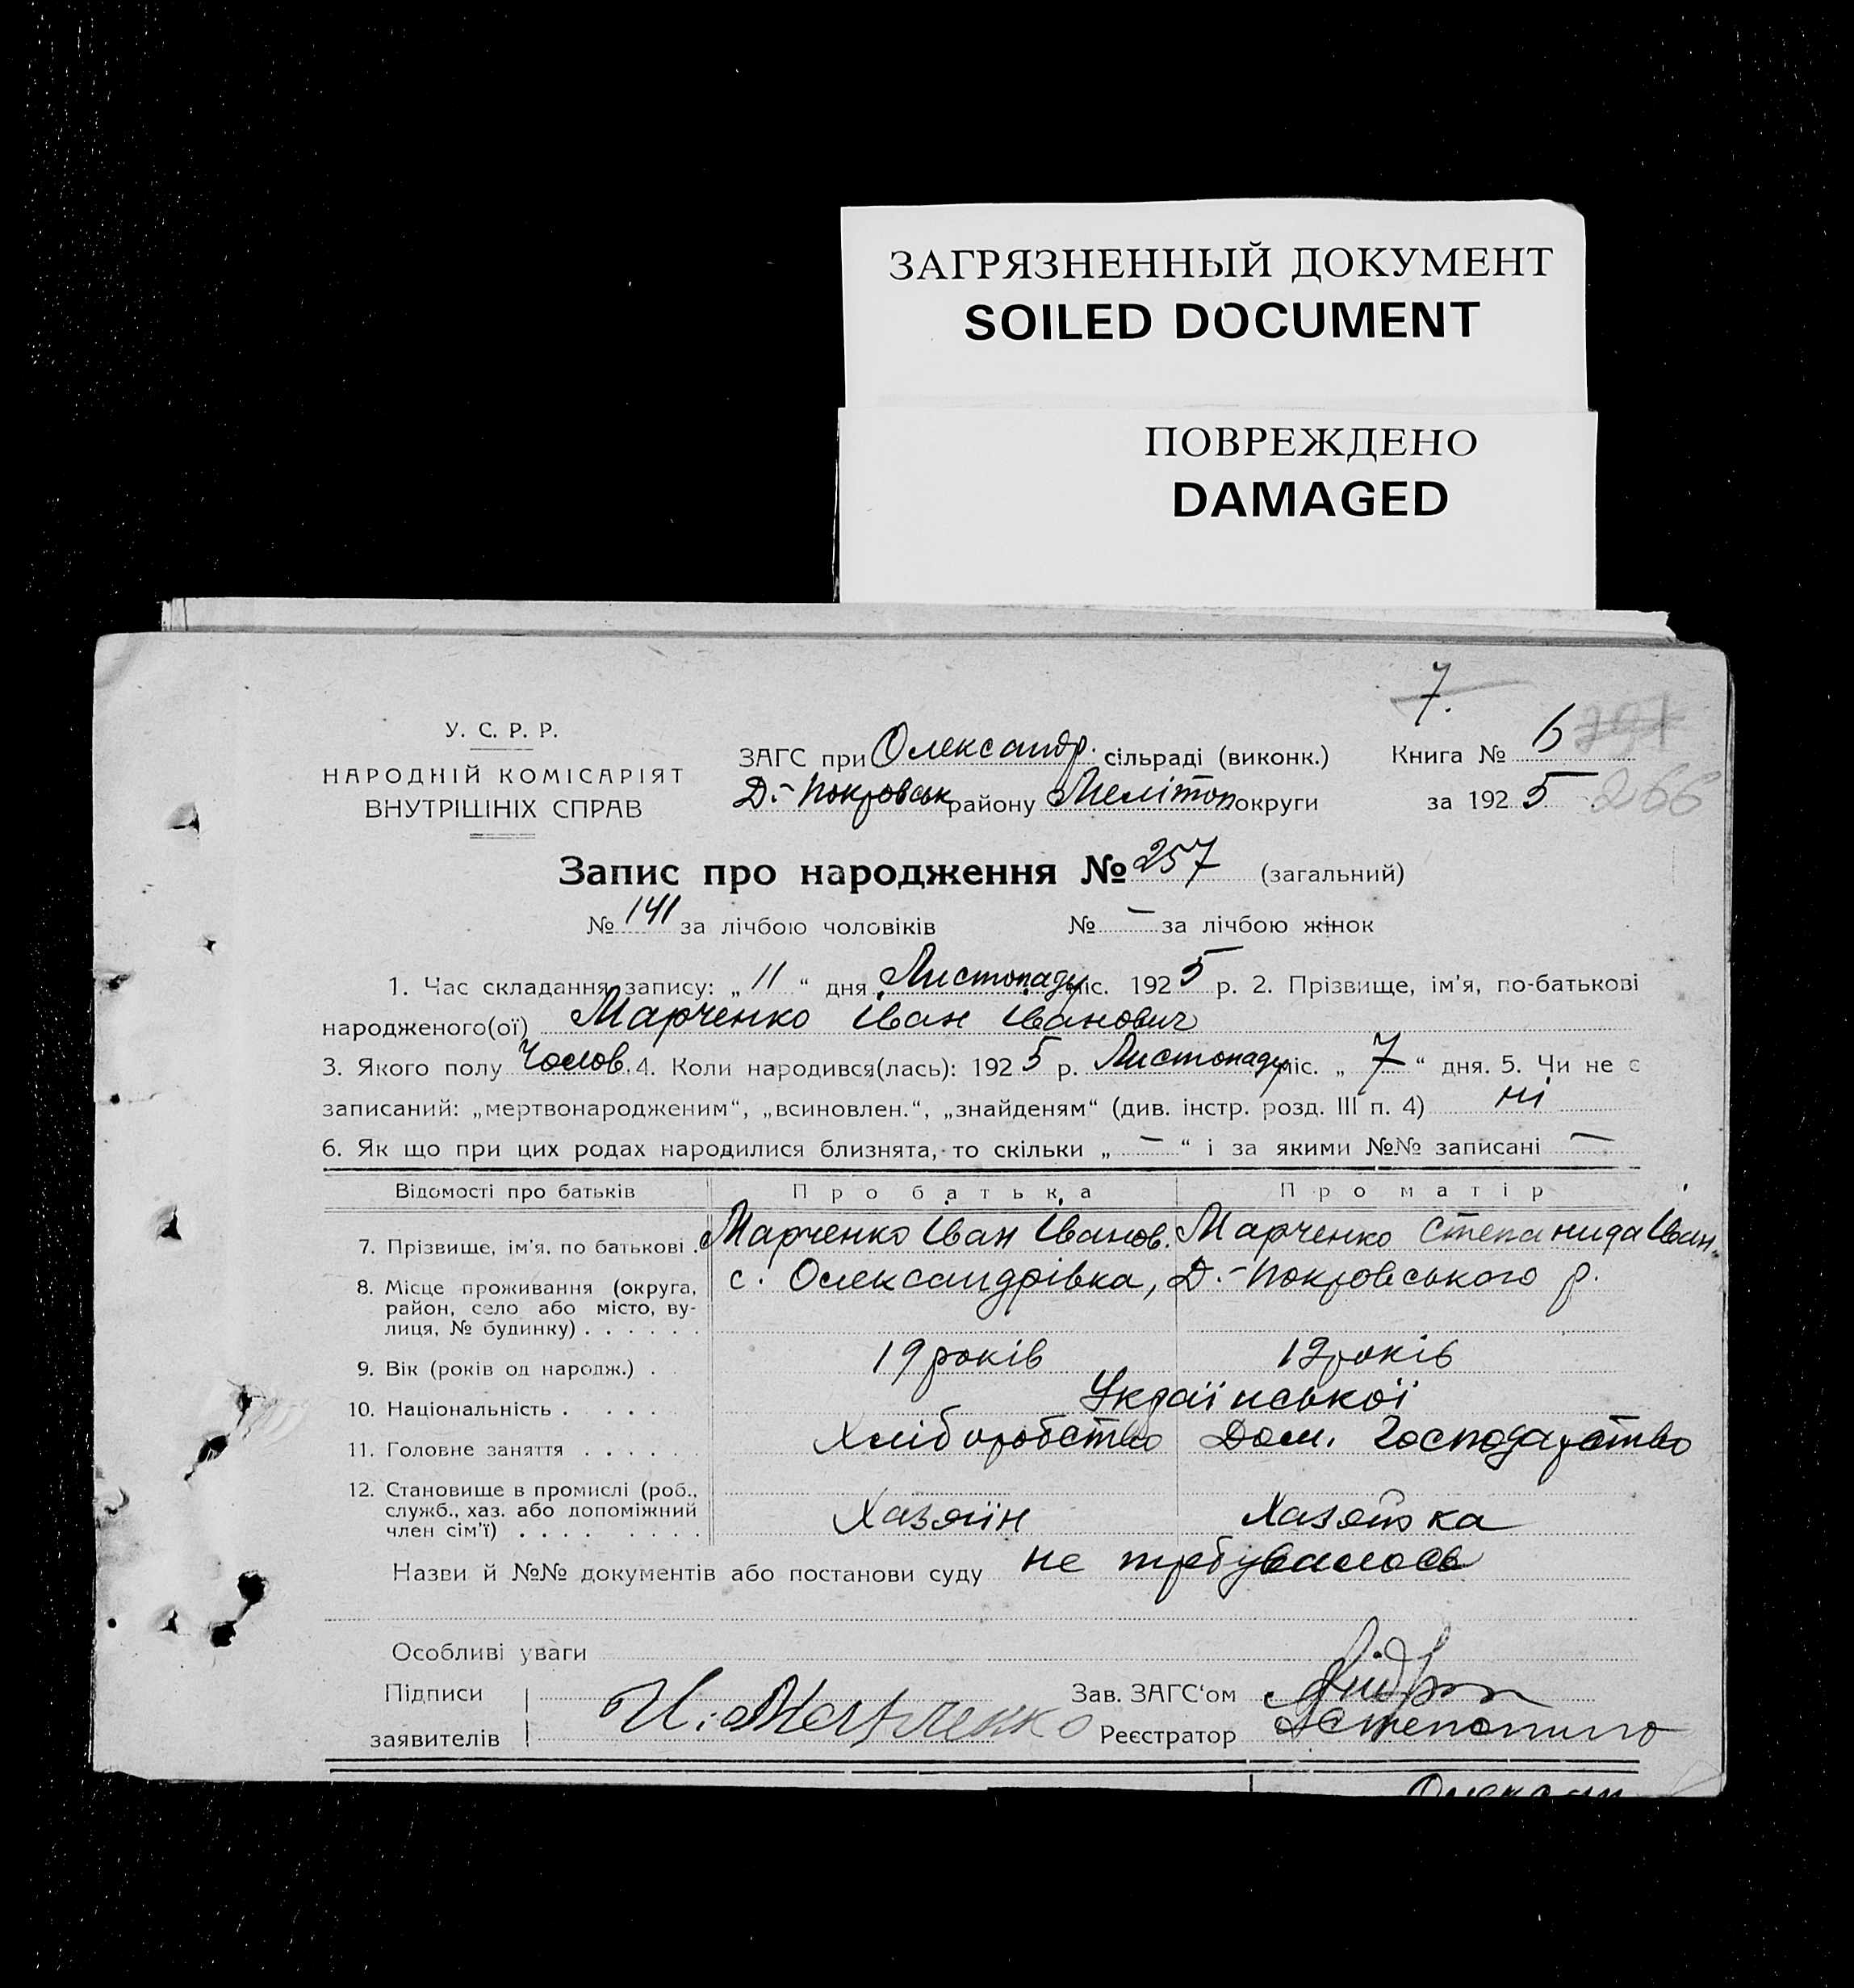 ЗАГРЯЗНЕННЫЙ ДОКУМЕНТ
SOILED DOCUMENT
ПОВРЕЖДЕНО
DAMAGED
7.
У. С. Р. Р.
НАРОДНІЙ КОМІСАРІЯТ
ВНУТРІШНІХ СПРАВ
ЗАГС при Олександр. сільраді (виконк.)
Д.-Покровськ району Мелітоп округи
Книга № 6
за 1925 266
Запис про народження № 257 (загальний)
№ 141 за лічбою чоловіків № — за лічбою жінок
1. Час складання запису: „11“ дня Листопаду міс. 1925 р. 2. Прізвище, ім'я, по-батькові
народженого(ої) Марченко Іван Іванович
3. Якого полу Чолов. 4. Коли народився(лась): 1925 р. Листопаду міс. „7“ дня. 5. Чи не є
записаний: „мертвонародженим“, „всиновлен.“, „знайденям“ (див. інстр. розд. III п. 4) ні
6. Як що при цих родах народилися близнята, то скільки „—“ і за якими №№ записані —
Відомості про батьків Про батька Про матір
7. Прізвище, ім'я, по батькові . Марченко Іван Іванов. Марченко Степанида Іван.
8. Місце проживання (округа, район, село або місто, вулиця, № будинку) . . . . . . с. Олександрівка, Д.-Покровського р.
9. Вік (років од народж.) . 19 років 19 років
10. Національність . . . . Української
11. Головне заняття . . . . . Хліборобство Дом. Господарство
12. Становище в промислі (роб., служб., хаз. або допоміжний член сім'ї) . . . . . . . . Хазяїн Хазяйка
Назви й №№ документів або постанови суду не требувалось
Особливі уваги
Підписи
заявителів И. Марченко
Зав. ЗАГС'ом
Реєстратор